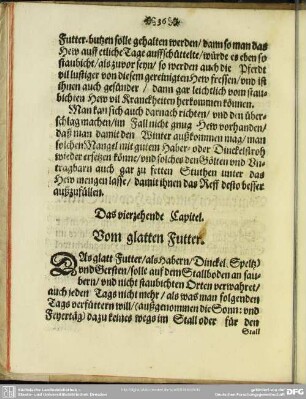 36
Futter-butzen solle gehalten werden / dann so man das
Hew auff etliche Tage auffschüttelte / würde es eben so
staubicht / als zuvor seyn / so werden auch die Pferdt
vil lustiger von diesem gereinigten Hew fressen / und ist
ihnen auch gesünder / dann gar leichtlich vom stau-
bichten Hew vil Kranckheiten herkommen können.
Man kan sich auch darnach richten / und den über-
schlag machen / im Fall nicht gnug Hew vorhanden /
daß man damit den Winter außkommen mag / man
solchen Mangel mit gutem Haber- oder Dinckelstroh
wieder ersetzen könne / und solches den Gölten und Vn-
tragbarn auch gar zu fetten Stuthen unter das
Hew mengen lasse / damit ihnen das Reff desto besser
außzufüllen.
Das vierzehende Capitel.
Vom glatten Futter.
DAs glatt Futter / als Habern / Dinckel / Speltz /
und Gersten / solle auf dem Stallboden an sau-
bern / und nicht staubichten Orten verwahret /
auch jeden Tags nicht mehr / als was man folgenden
Tags verfüttern will / (außgenommen die Sonn- und
Feyertäg) dazu keines wegs im Stall oder für den
Stall